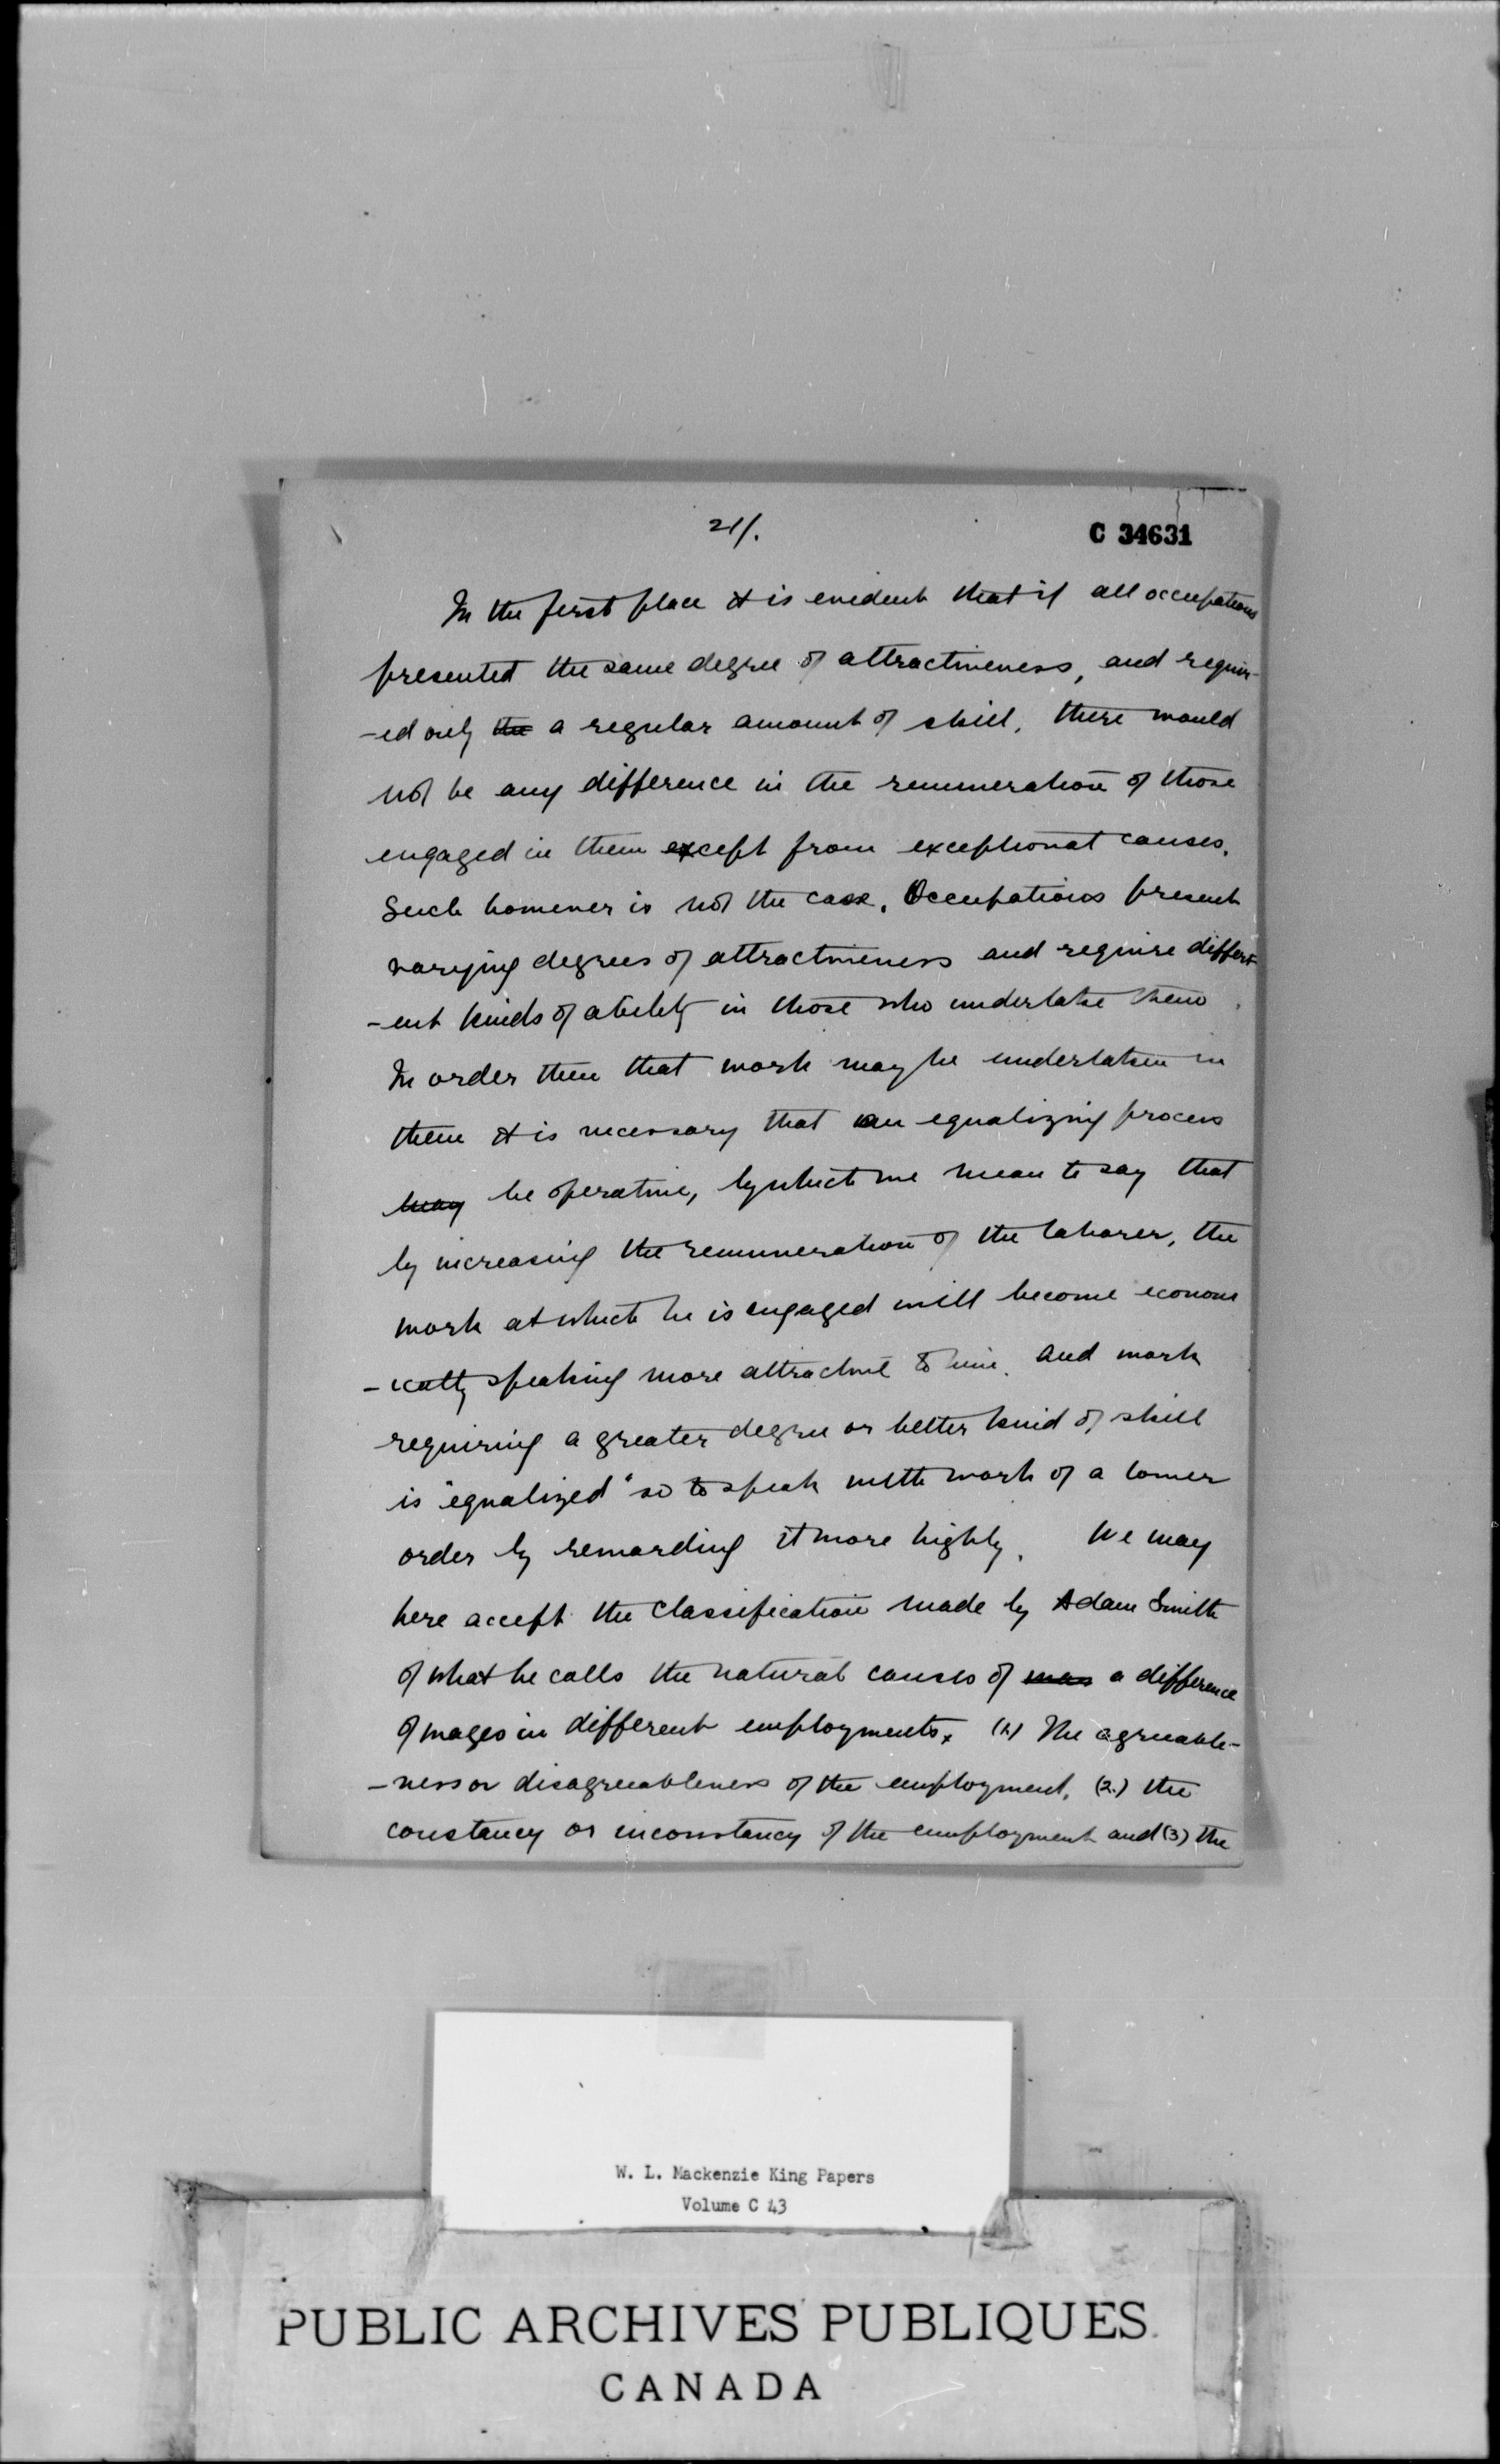 21/.
C 34631
In the first place it is evident that if all occupations
presented the same degree of attractiveness, and requir-
-ed only the a regular amount of skill, there would
not be any difference in the remuneration of those
engaged in them except from exceptional causes.
Such however is not the case. Occupations present
varying degrees of attractiveness and require differ-
-ent kinds of ability in those who undertake them.
In order then that work may be undertaken in
them it is necessary that an equalizing process
may be operative, by which we mean to say that
by increasing the remuneration of the laborer, the
work at which he is engaged will become econom
-ically speaking more attractive to him. and work
requiring a greater degree or better kind of skill
is "equalized" so to speak with work of a lower
order by rewarding it more highly. We may
here accept the classification made by Adam Smith
of what he calls the natural causes of a difference
of wages in different employments. (1.) The agreeable-
-ness or disagreeableness of the employment. (2.) the
constancy or inconstancy of the employment and (3) the
W. L. Mackenzie King Papers
Volume C 43
PUBLIC ARCHIVES PUBLIQUES
CANADA